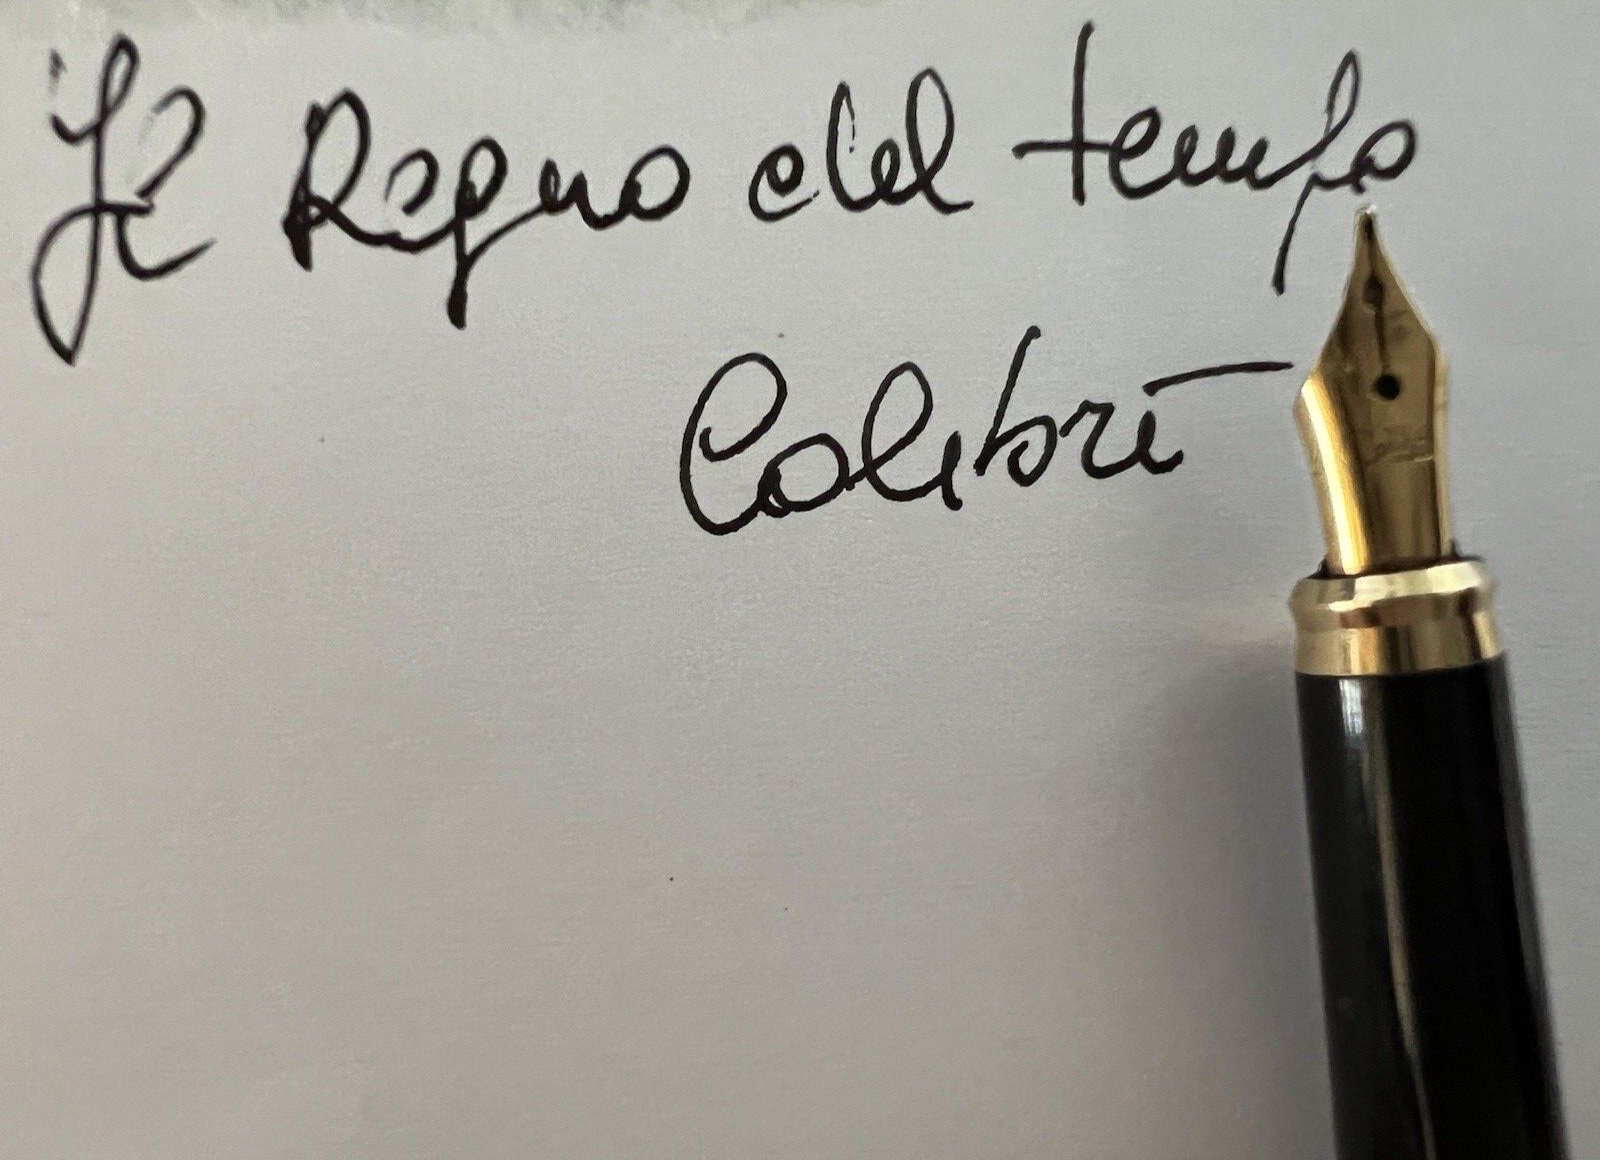 Il Regno del tempo
Colibrì